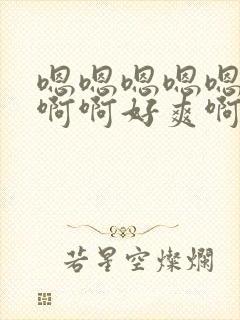 嗯嗯嗯嗯嗯
啊啊好爽啊
若星空燦爛